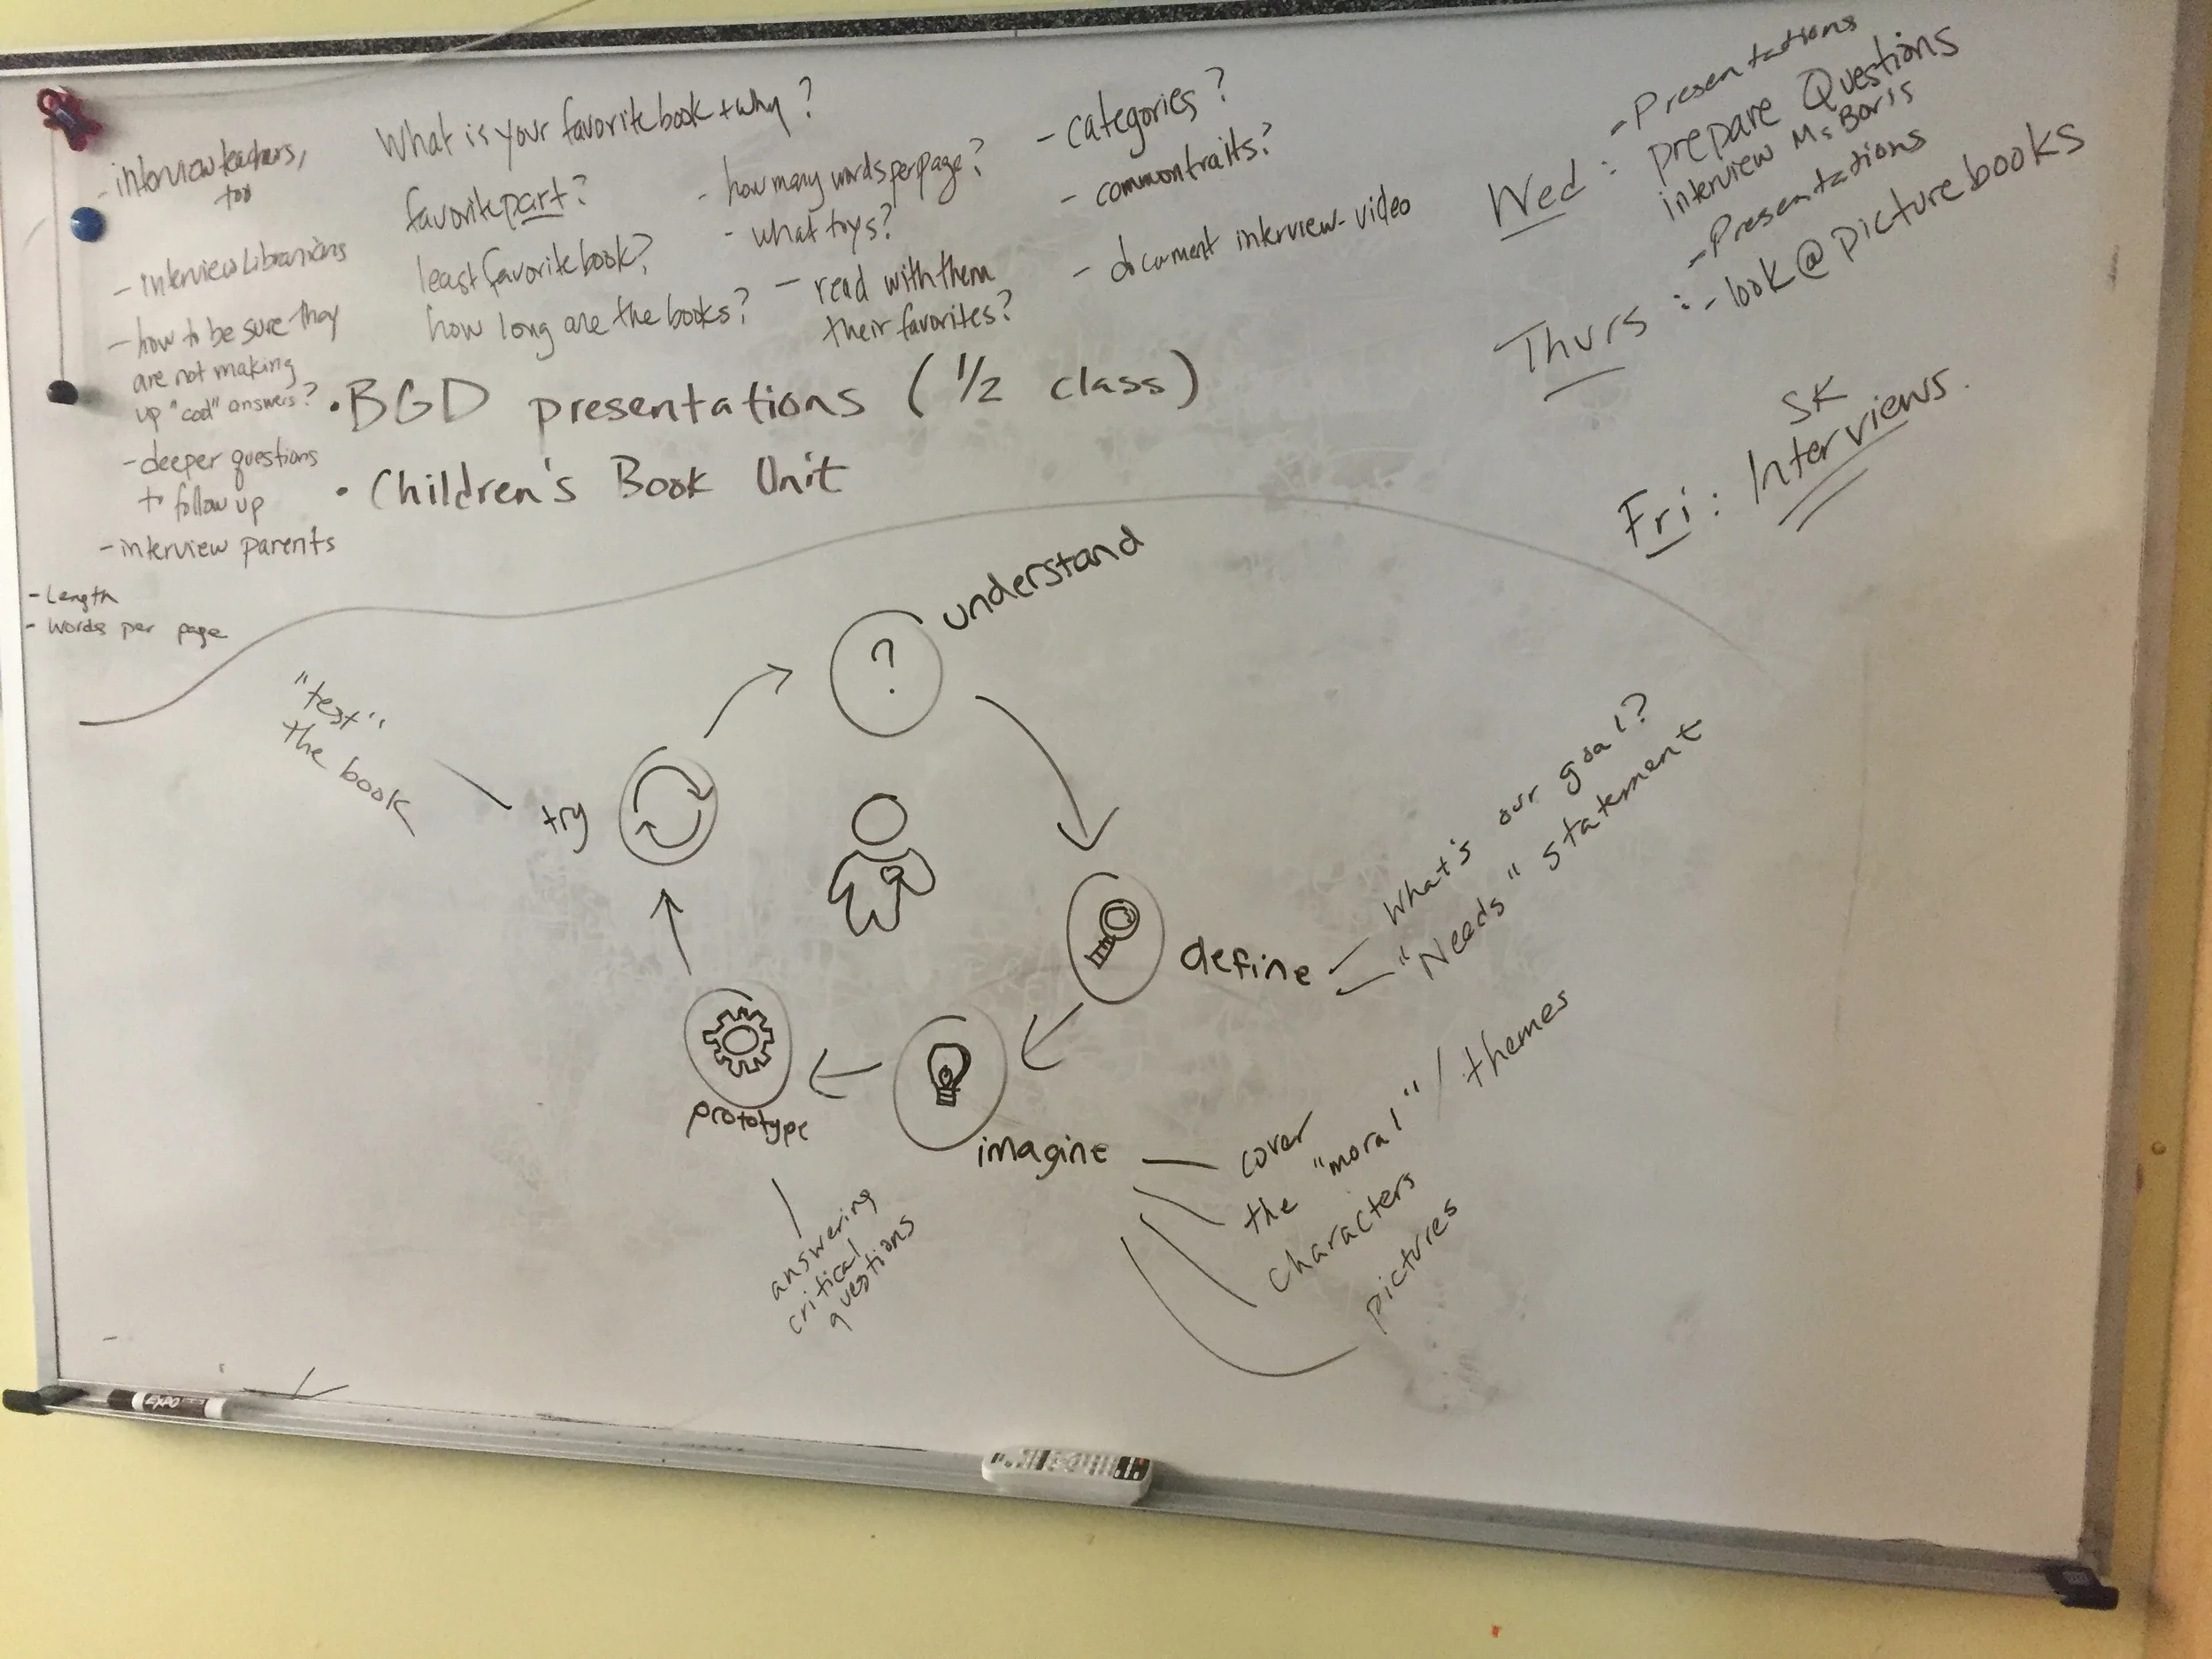 - interview teachers,
too
- interview Librarians
- how to be sure they
are not making
up "cool" answers?
- deeper questions
to follow up
- interview parents
- Length
- words per page
What is your favorite book + why?
favorite part?
least favorite book?
how long are the books?
- how many words per page?
- what toys?
- read with them
their favorites?
- categories?
- common traits?
- document interview - video
• BGD presentations (1/2 class)
• Children's Book Unit
- Presentations
Wed: prepare Questions
interview Ms Boris
- Presentations
Thurs: - look @ picture books
SK
Fri: Interviews.
understand
?
define
What's our goal?
"Needs" statement
imagine
cover
the "moral" / themes
characters
pictures
prototype
answering
critical
questions
try
"test"
the book
EXPO